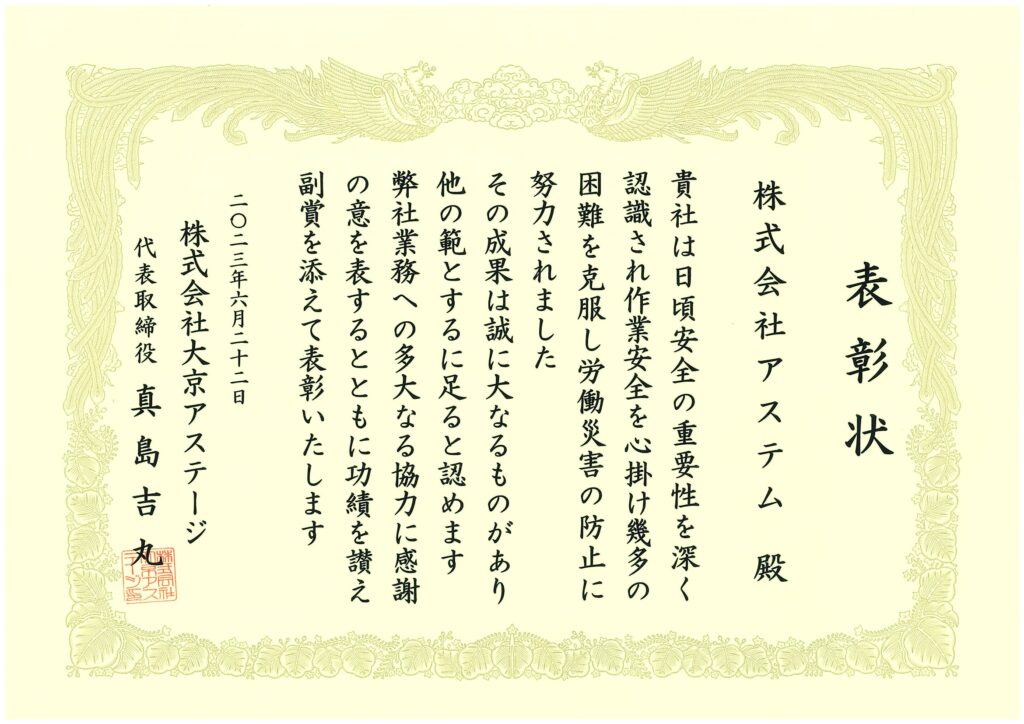 表彰状
株式会社アステム 殿
貴社は日頃安全の重要性を深く
認識され作業安全を心掛け幾多の
困難を克服し労働災害の防止に
努力されました
その成果は誠に大なるものがあり
他の範とするに足ると認めます
弊社業務への多大なる協力に感謝
の意を表するとともに功績を讃え
副賞を添えて表彰いたします
二〇二三年六月二十二日
株式会社大京アステージ
代表取締役 真島吉丸
株式会社
大京アス
テージ印